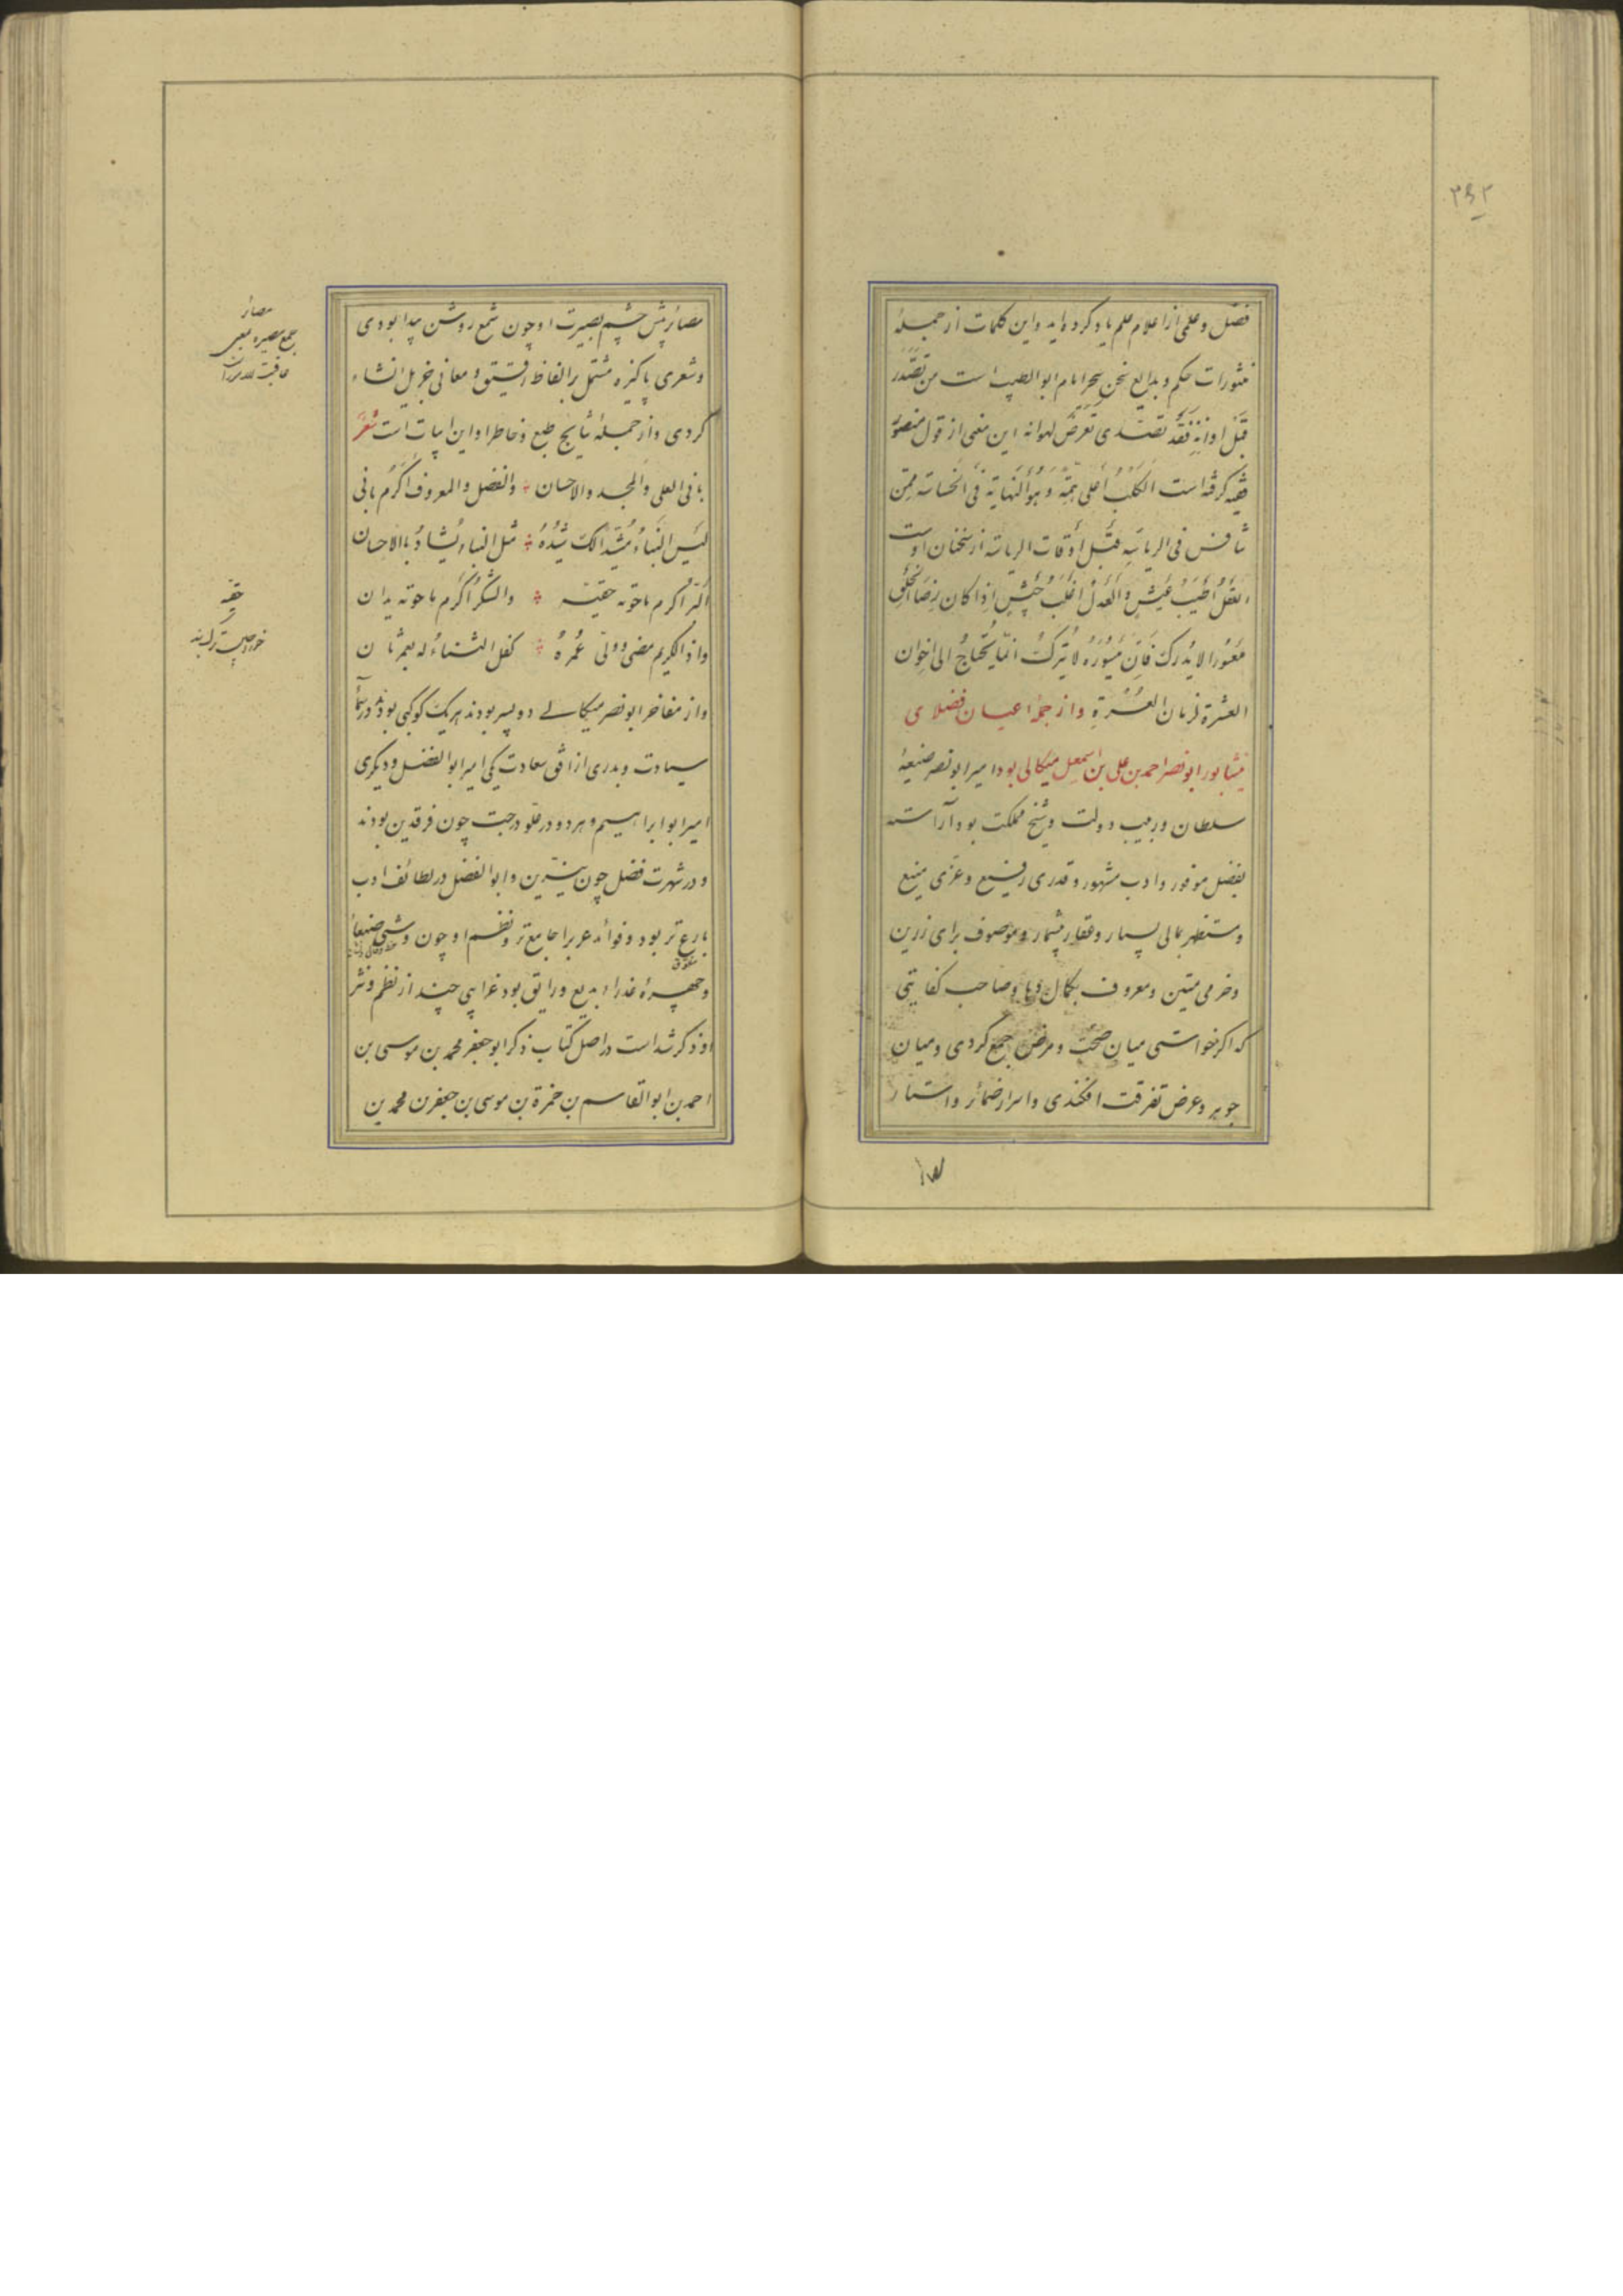 ۳۶۲
فضل و علمی از اعلام علم یاد کرده‌اید و این کلمات از جملهٔ
منثورات حکم و بدایع سحر امام ابو الطیب است من تصدّر
قبل اوانه فقد تصدّی تعرّض لهوانه این معنی از قول منصور
فقیه گرفته است الکلب أعلی همّة و هو النهایة فی الخساسة ممّن
ینافس فی الریاسة قبل أوقات الریاسة از سخنان اوست
العقل أطیب عیش و العدل أغلب جیش إذا کان رضا الخلق
معسورا لا یدرک فان میسوره لا یترک انّما یحتاج الی اخوان
العشرة لزمان العسرة و از جملهٔ اعیان فضلای
نیشابور ابو نصر احمد بن علی بن اسمعیل میکالی بود امیر ابو نصر صنیعهٔ
سلطان و ربیب دولت و شیخ مملکت بود آراسته
بفضل موفور و ادب مشهور و قدری رفیع و عزّی منیع
و مستظهر بمالی بسیار و عقار بیشمار و موصوف برای زرین
و حزمی متین و معروف بکمال دها و صاحب کفایتی
که اگر خواستی میان صحّت و مرض جمع کردی و میان
جوهر و عرض تفرقت افکندی و اسرار ضمائر و استار
مصائر پیش چشم بصیرت او چون شمع روشن پیدا بودی
و شعری پاکیزه مشتمل بر الفاظ رقیق و معانی جزیل انشاء
کردی و از جملهٔ نتایج طبع و خاطر او این ابیات است شعر
بانی العلی و المجد و الاحسان و الفضل و المعروف أکرم بانی
لیس البناء مشیّدا لک شیده مثل البناء یشاد بالاحسان
البرّ أکرم ما حوته حقیبة و الشکر أکرم ما حوته یدان
و اذا الکریم مضی و ولّی عمره کفل الثناء له بعمر ثان
و از مفاخر ابو نصر میکالی دو پسر بودند هر یک کوکبی بودند در سماء
سیادت و بدری از افق سعادت یکی امیر ابو الفضل و دیگری
امیر ابو ابراهیم و هر دو در علوّ درجت چون فرقدین بودند
و در شهرت فضل چون نیّرین و ابو الفضل در لطائف ادب
بارع تر بود و فوائد عرب را جامع تر و نظم او چون وشی صنعا
و چهرهٔ عذرا بدیع و رایق بود غرایبی چند از نظم و نثر
او ذکر شده است در اصل کتاب ذکر ابو جعفر محمد بن موسی بن
احمد بن ابو القاسم بن حمزة بن موسی بن جعفر بن محمد بن
مصائر
جمع مصیره بمعنی